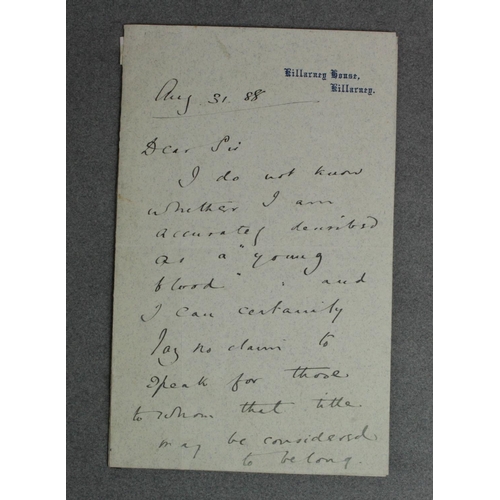 Killarney House,
Killarney.
Aug 31. 88
Dear Sir
I do not know
whether I am
accurately described
as a "young
blood", and
I can certainly
lay no claim to
speak for those
to whom that title
may be considered
to belong.